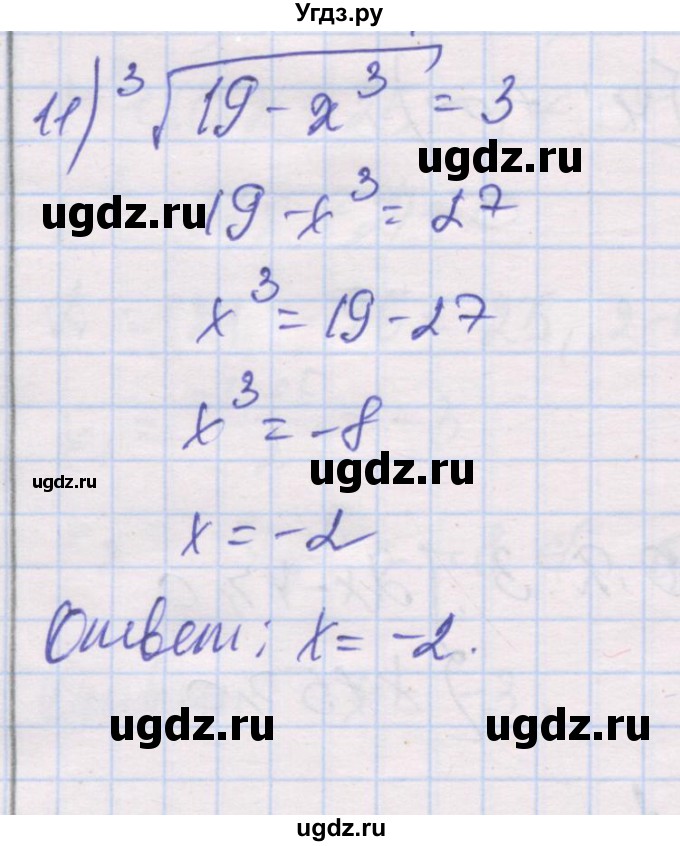 Угдз.ру
11) ³√(19 - x³) = 3
ugdz.ru
ugdz.ru
19 - x³ = 27
x³ = 19 - 27
x³ = -8
ugdz.ru
ugdz.ru
x = -2
Ответ: x = -2.
ugdz.ru
ugdz.ru
ugdz.ru